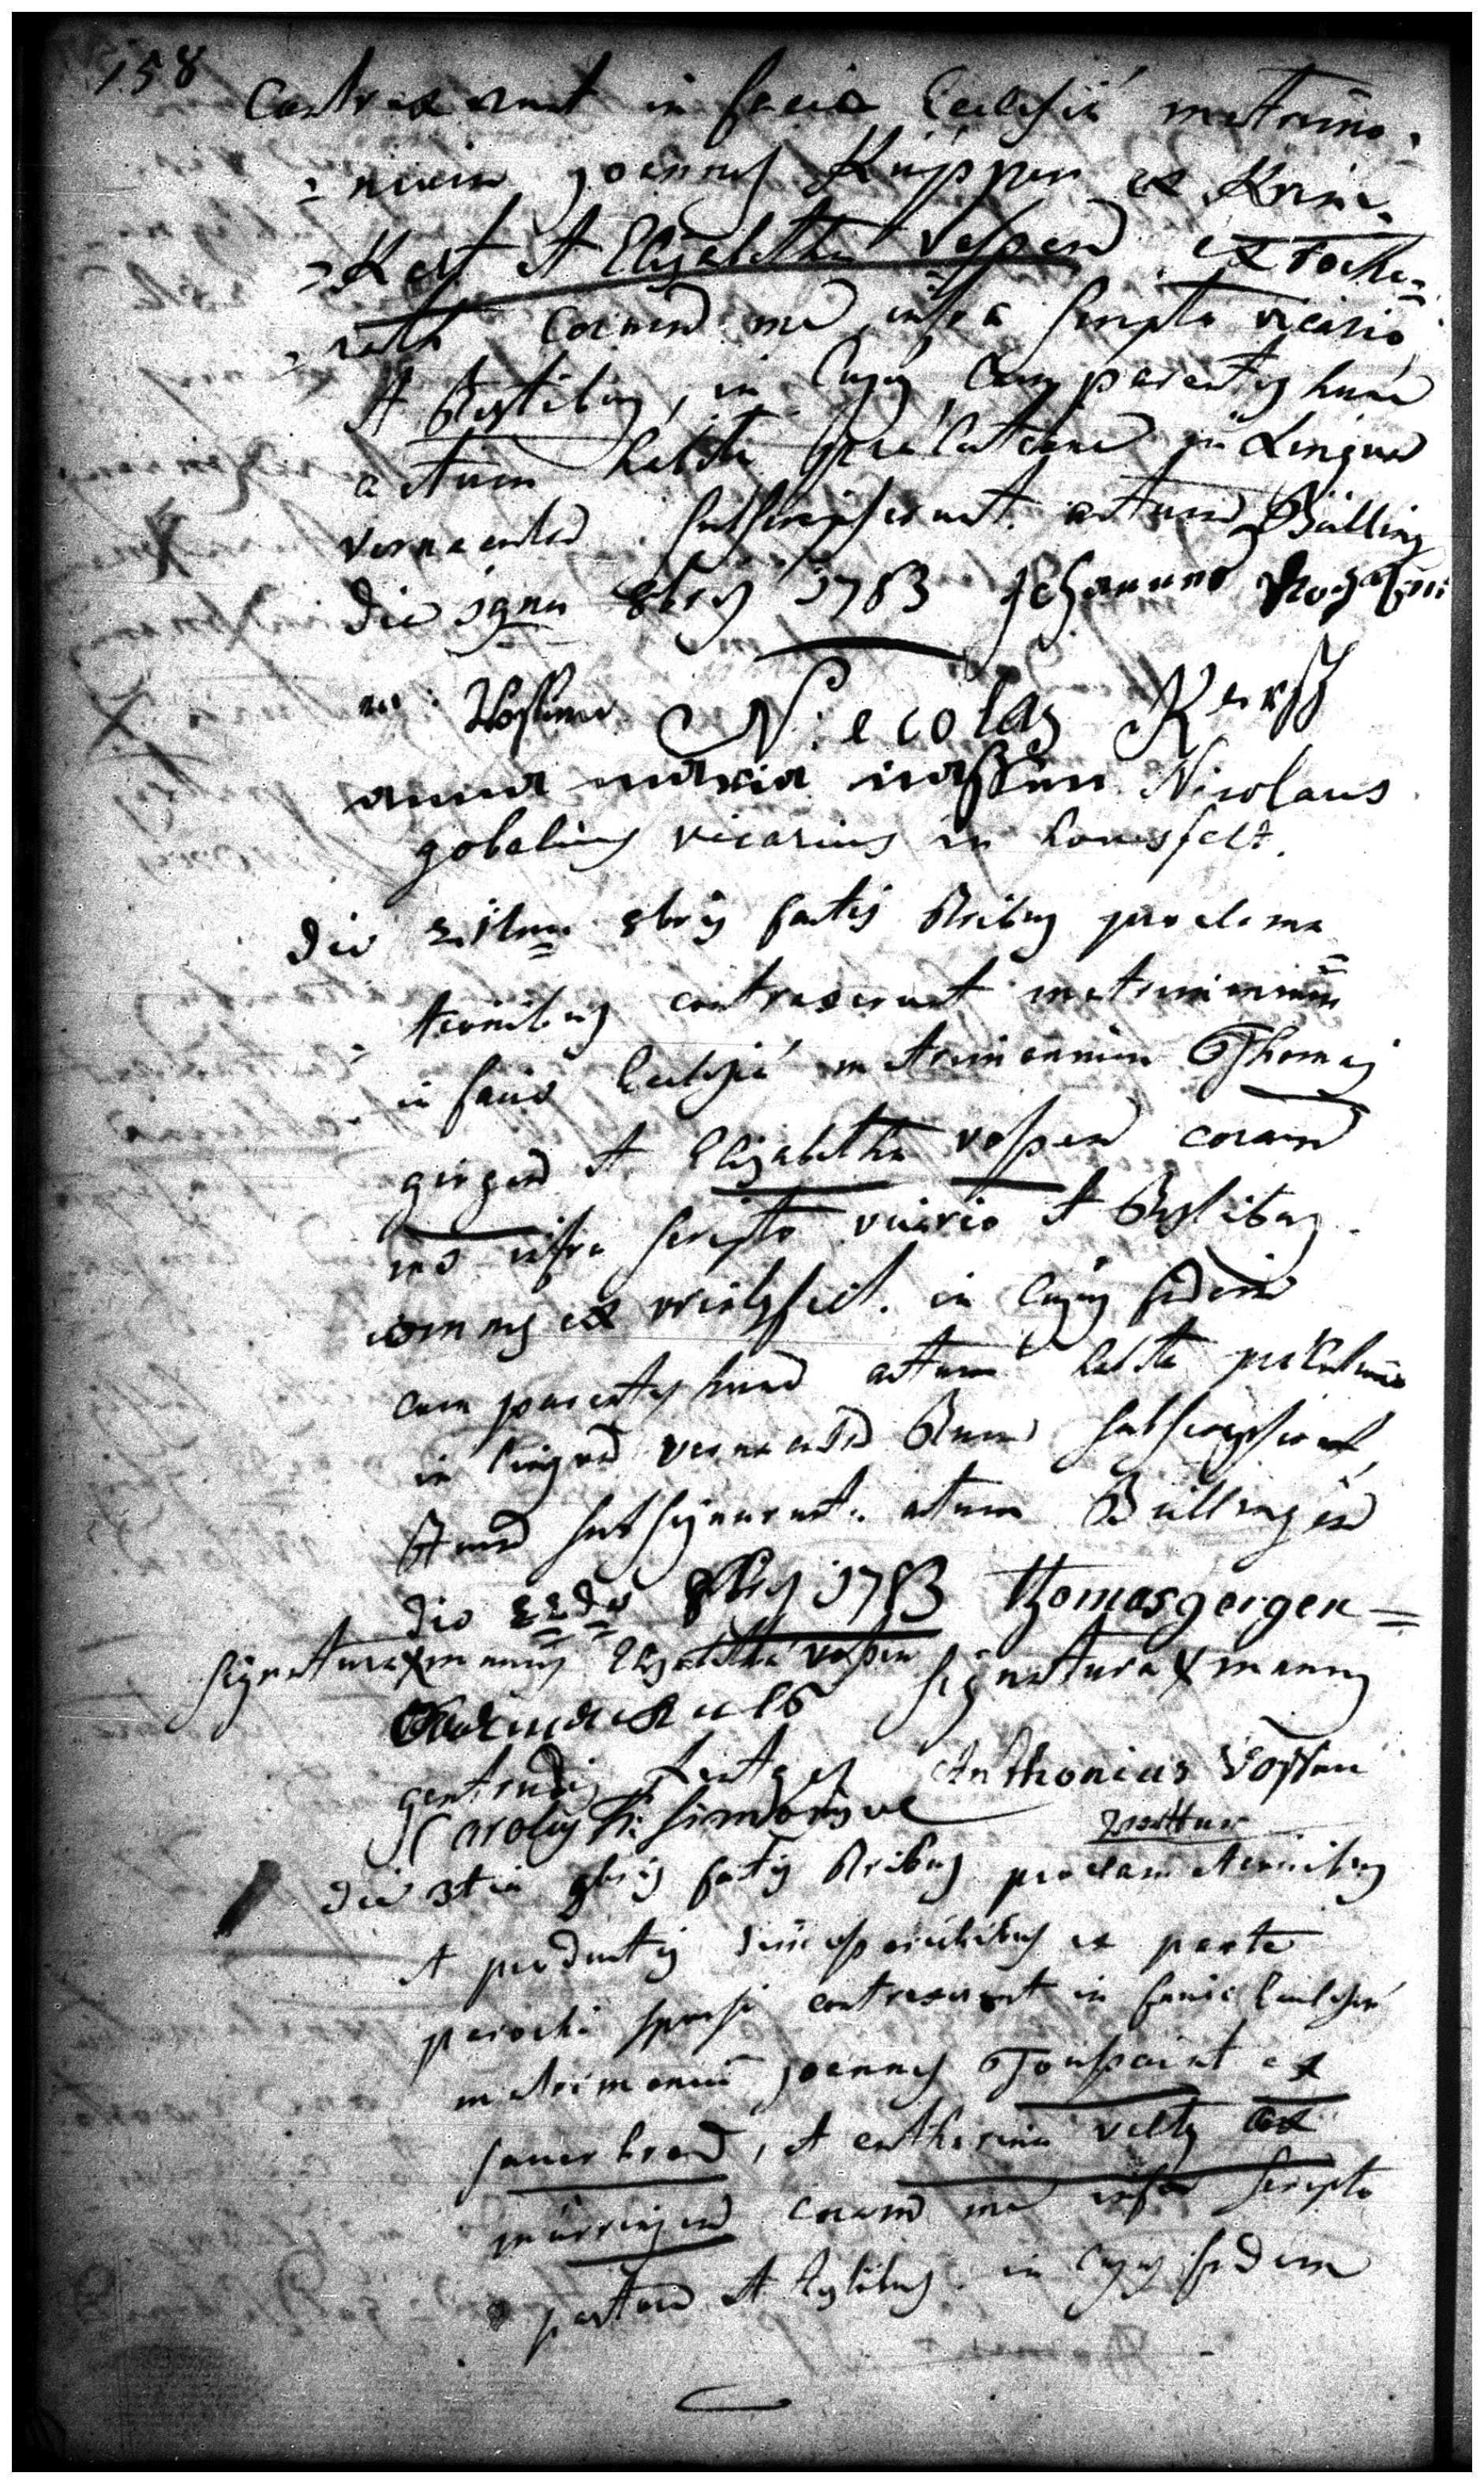 158
Contraxerunt in facie Ecclesiæ matrimo-
=nium joannes Küpper ex Krin-
=Kelt et Elizabetha Vossen ex roche-
rath coram me infra scripto vicario
et testibus, in cujus comparentes hunc
actum habita prælatione in Lingua
vernacula subscripserunt. actum Bulling
die 19na 8bris 1783
Nicolas
anna maria Nicolaus
gobelius vicarius in honsfelt.
die 21ma 8bris factis tribus proclama
=tionibus contraxerunt matrimonium
in facie Ecclesiæ matrimonium Thomas
girgen et Elizabetha vossen coram
me infra scripto vicario et testibus
ex in cujus fidem
comparentes hunc actum habita prælatione
in lingua vernacula tum subscripserunt,
tum subsignarunt. actum Bullingen
die 22da 8bris 1783 thomas gergen =
signatura x manus Elizabetha vossen signatura x manus
gertrudis Anthonius Vossen
Carolus
die 3tia 9bris factis tribus proclamationibus
et productis dimissorialibus ex parte
parochi sponsi contraxerunt in facie Ecclesiæ
matrimonium joannes Toussaint ex
sauerbrod, et catharina velts ex
mürringen coram me infra scripto
pastore et testibus. in cujus fidem